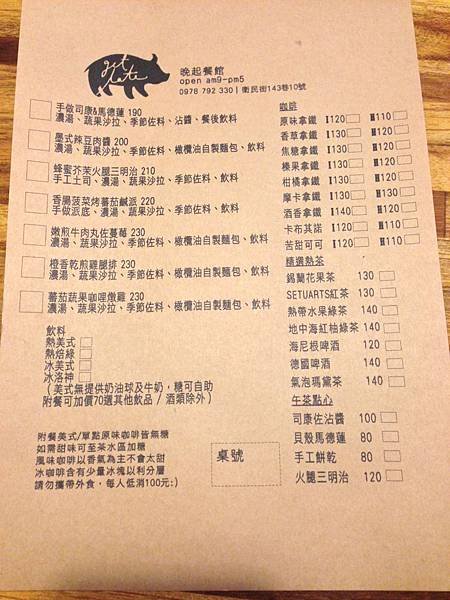 get late
晚起餐館
open am9-pm5
0978 792 330 | 衛民街143巷10號
手做司康&馬德蓮 190
濃湯、蔬果沙拉、季節佐料、沾醬、餐後飲料
墨式辣豆肉醬 200
濃湯、蔬果沙拉、季節佐料、橄欖油自製麵包、飲料
蜂蜜芥茉火腿三明治 210
手工土司、濃湯、蔬果沙拉、季節佐料、飲料
香腸菠菜烤蕃茄鹹派 220
手做派底、濃湯、蔬果沙拉、季節佐料、飲料
嫩煎牛肉丸佐蔓莓 230
濃湯、蔬果沙拉、季節佐料、橄欖油自製麵包、飲料
橙香乾煎雞腿排 230
濃湯、蔬果沙拉、季節佐料、橄欖油自製麵包、飲料
蕃茄蔬果咖哩燉雞 230
濃湯、蔬果沙拉、季節佐料、橄欖油自製麵包、飲料
飲料
熱美式
熱焙綠
冰美式
冰洛神
(美式無提供奶油球及牛奶，糖可自助
附餐可加價70選其他飲品 / 酒類除外)
附餐美式/單點原味咖啡皆無糖
如需甜味可至茶水區加糖
風味咖啡以香氣為主不會太甜
冰咖啡含有少量冰塊以利分層
請勿攜帶外食，每人低消100元:)
桌號
咖啡
原味拿鐵 I120 H110
香草拿鐵 I130 H120
焦糖拿鐵 I130 H120
榛果拿鐵 I130 H120
柑橘拿鐵 I130 H120
摩卡拿鐵 I130 H120
酒香拿鐵 I140 H130
卡布其諾 I120 H110
苦甜可可 I120 H110
精選熱茶
錫蘭花果茶 130
SETUARTS紅茶 130
熱帶水果綠茶 140
地中海紅柚綠茶 140
海尼根啤酒 120
德國啤酒 140
氣泡瑪黛茶 140
午茶點心
司康佐沾醬 100
貝殼馬德蓮 80
手工餅乾 80
火腿三明治 120